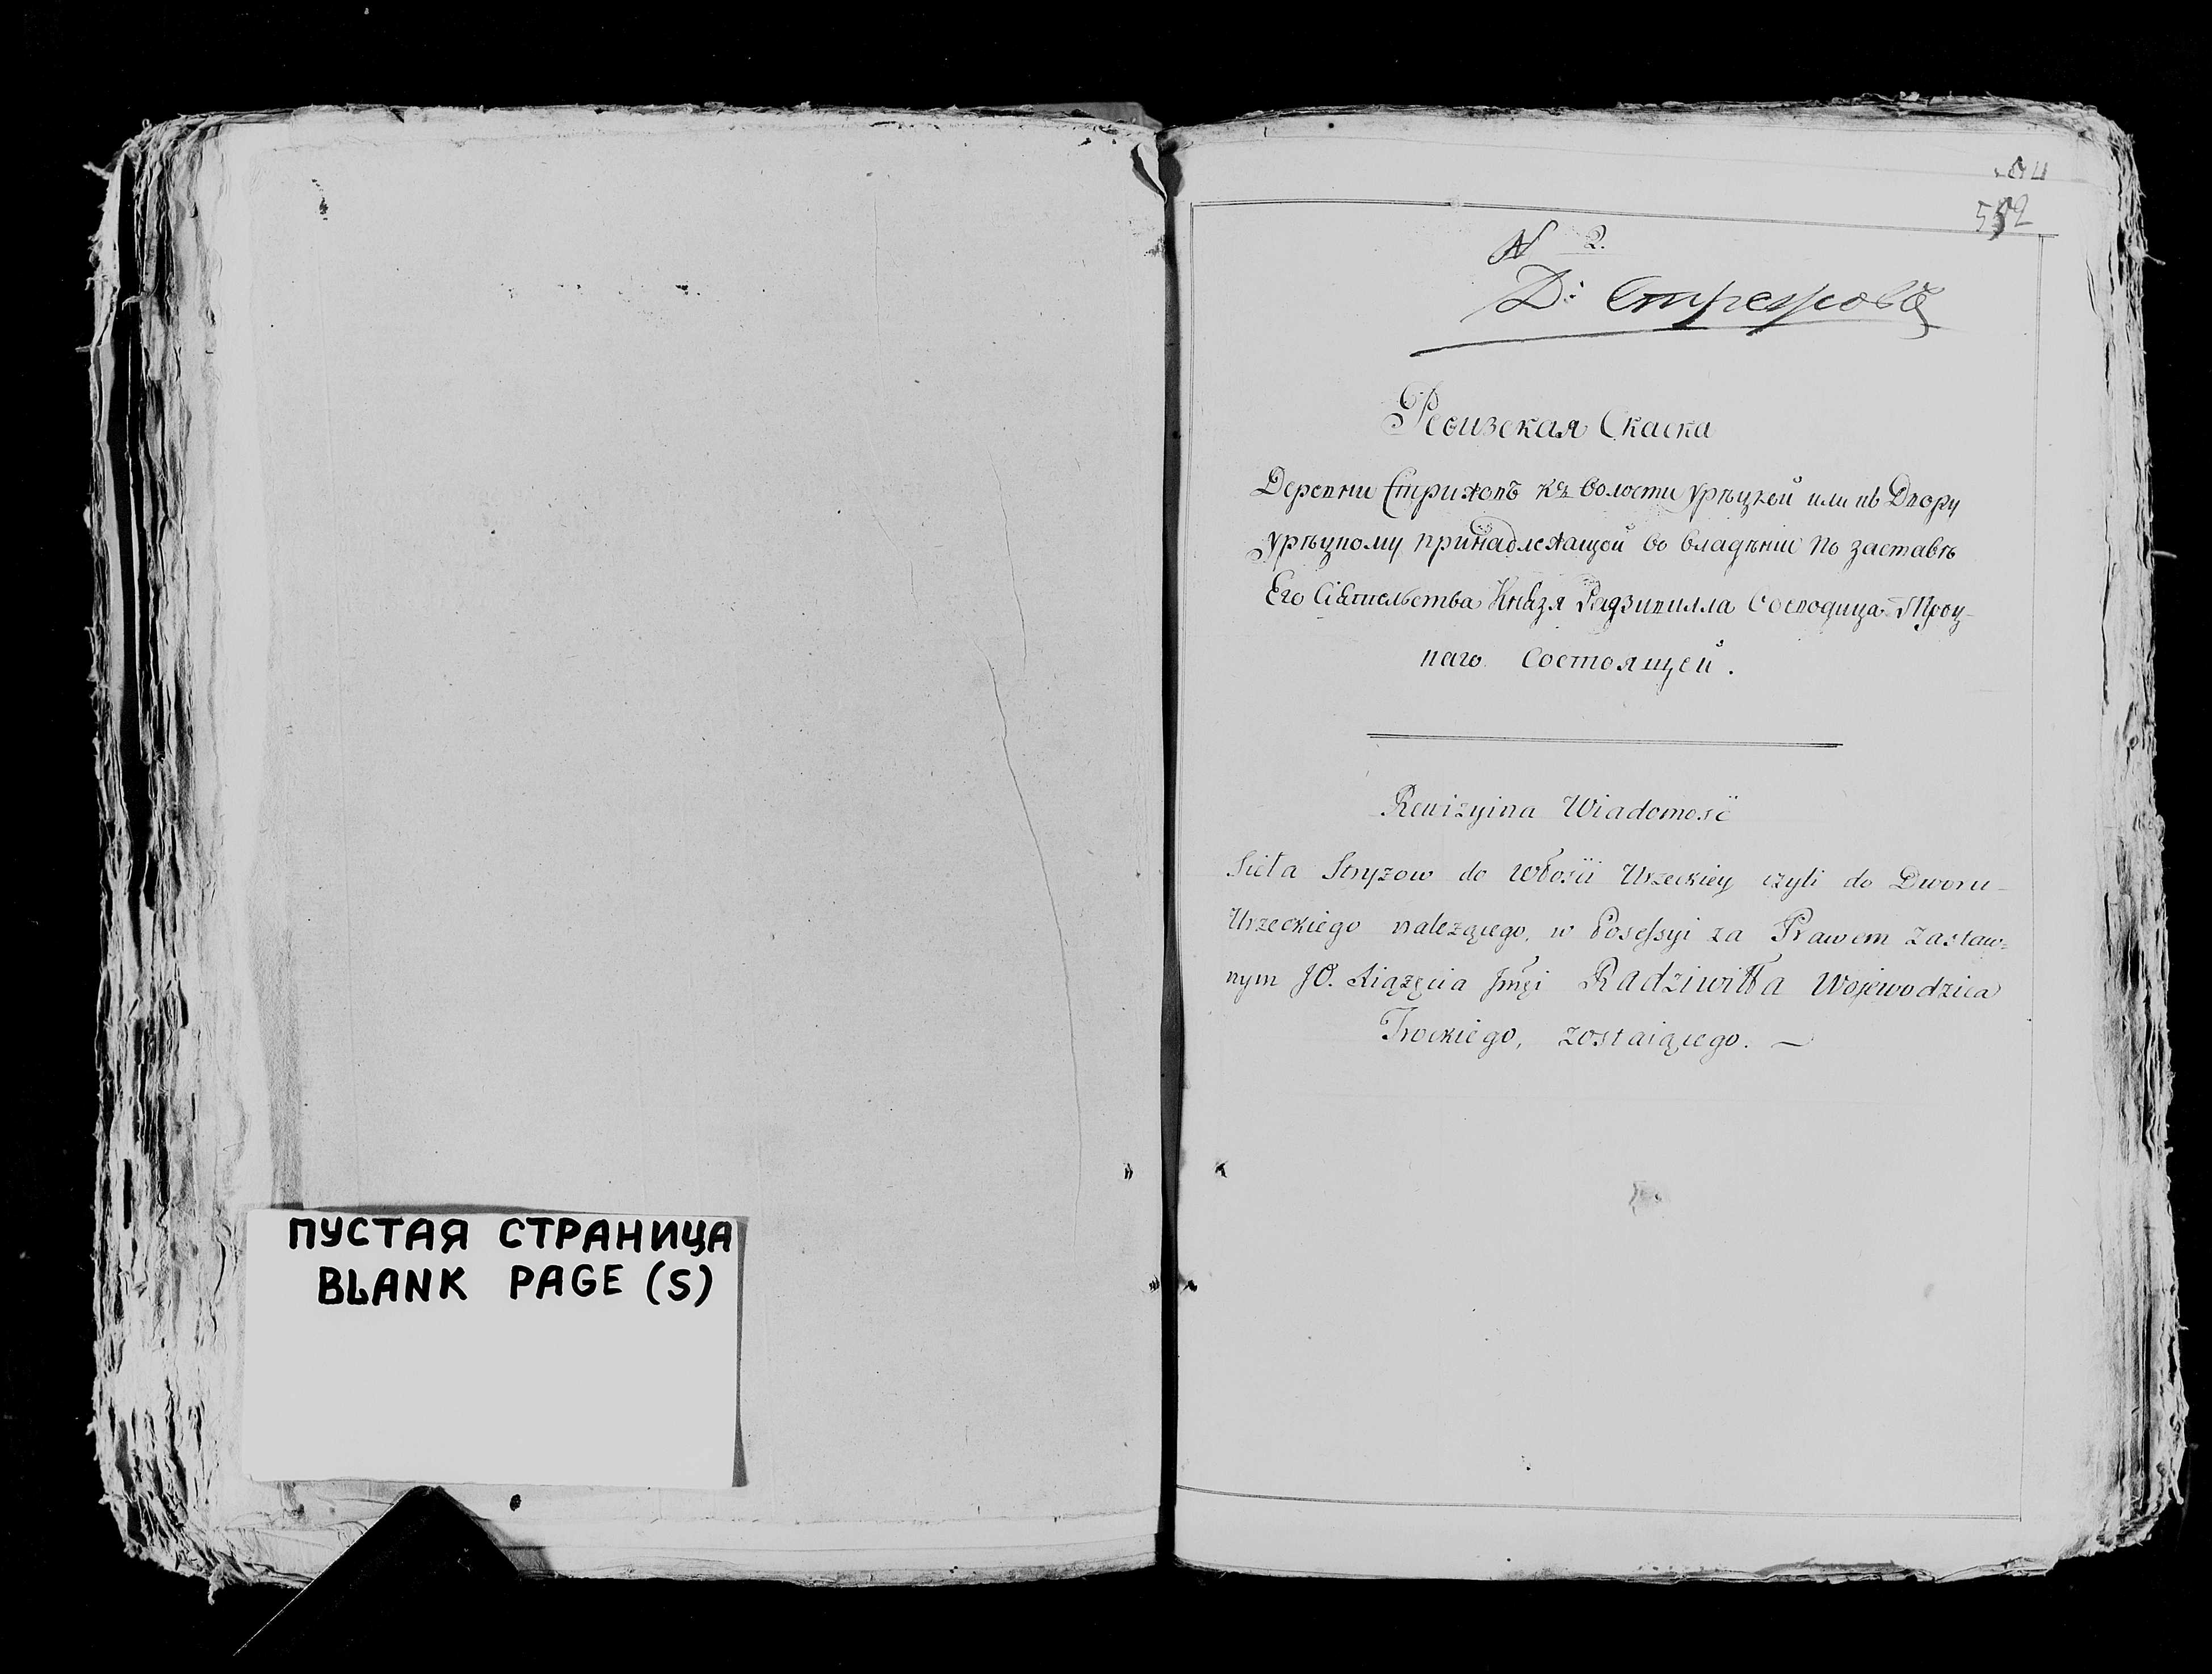 ПУСТАЯ СТРАНИЦА
BLANK PAGE (S)
552
N 2.
Д: Стрежовъ
Ревизская Скаска
Деревни Стрижовъ къ волости Урѣцкой или къ Двору
Урѣцкому принадлежащой во владѣніе по заставѣ
Его Сіятельства Князя Радзивилла Воеводица Троц-
каго состоящей.
Rewizyina Wiadomość
Sieła Stryzow do Włości Urzeckiey czyli do Dworu
Urzeckiego nalezącego, w Posessyi za Prawem Zastaw=
nym JO. Xiązęcia Jmći Radziwiłła Wojewodzica
Trockiego, zostaiącego. —